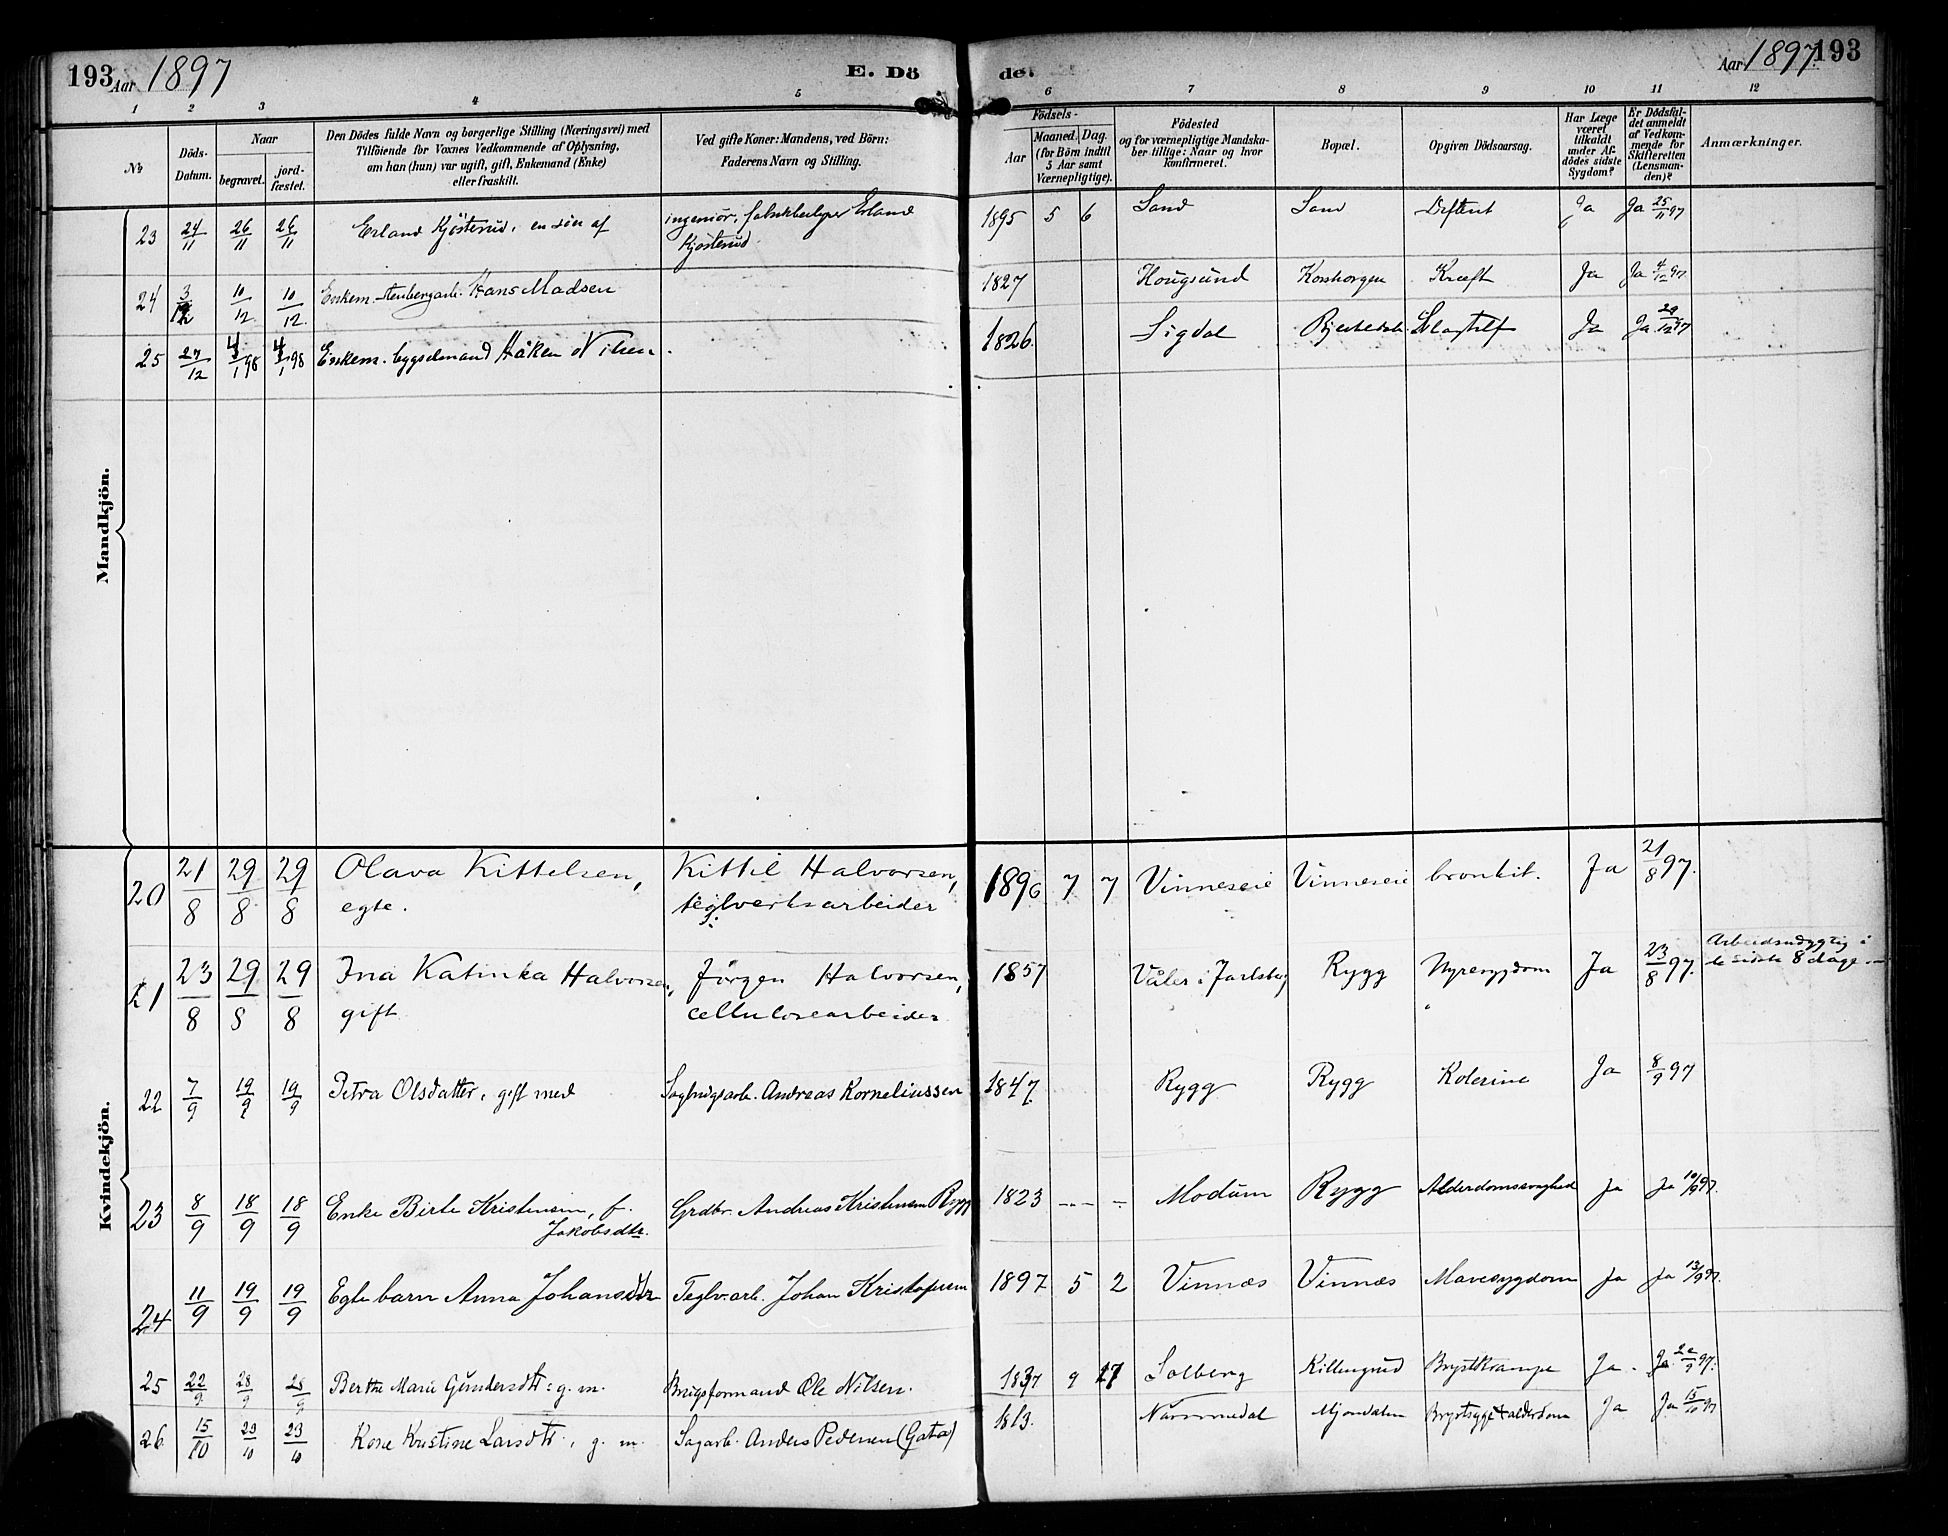 193 Aar 1897 E. Dö de. Aar 1897. 193
1 2 3 4 5 6 7 8 9 10 11 12
No
Döds-Datum.
Naar
begravet.
jord-fæstet.
Den Dödes fulde Navn og borgerlige Stilling (Næringsvei) med
Tilföiende for Voxnes Vedkommende af Oplysning,
om han (hun) var ugift, gift, Enkemand (Enke)
eller fraskilt.
Ved gifte Koner: Mandens, ved Börn:
Faderens Navn og Stilling.
Födsels-
Aar
Maaned. Dag.
(for Börn indtil
5 Aar samt
Værnepligtige).
Födested
og for værnepligtige Mandska-
ber tillige: Naar og hvor
konfirmeret.
Bopæl.
Opgiven Dödsaarsag.
Har Læge
været
tilkaldt
under Af-
dödes sidste
Sygdom?
Er Dödsfal-
det anmeldt
af Vedkom-
mende for
Skifteretten
(Lensman-
den)?
Anmærkninger.
Mandkjön.
23 24/11 26/11 26/11 Erland Kjösterud, en sön af ingeniör, Erland 1895 5 6 Sand Sand Difterit Ja Ja 25/11 97
Kjösterud.
24 3/12 10/12 10/12 Enkem. Hans Madsen 1827 Hougsund Korshorgen Kræft Ja Ja 4/12 97
25 27/12 4/1 98 4/1 98 Enkem. bygselmand Håken Nilsen. 1826. Sigdal Slagtilf Ja Ja 29/12 97
Kvindekjön.
20 21/8 29/8 29/8 Olava Kittelsen, Kittil Halvorsen, 1896 7 7 Vinneseie Vinneseie bronkit. Ja 21/8 97.
egte. teglverksarbeider
21 23/8 29/8 29/8 Ina Katinka Halvorsen, Jörgen Halvorsen, 1857 Våler i Jarlsberg Rygg Nyresygdom Ja 23/8 97. Arbeidsudygtig i
gift cellulosearbeider de sidste 8 dage.
22 7/9 19/9 19/9 Petra Olsdatter, gift med Sagbrugsarb. Andreas Korneliussen 1847. Rygg Rygg Kolerine Ja 8/9 97
23 8/9 18/9 18/9 Enke Birte Kristensen, f. Grdbr. Andreas Kristensen Rygg 1823 - - - Modum Rygg Alderdomssvaghed Ja Ja 10/9 97.
Jakobsdtr.
24 11/9 19/9 19/9 Egte barn Anna Johansdtr Teglv.arb. Johan Kristofersen 1897 5 2 Vinnæs Vinnæs Mavesygdom Ja Ja 13/9 97.
25 22/9 28/9 28/9 Berthe Marie Gundersdtr: g. m. Brugsformand Ole Nilsen. 1837 9 27 Solberg Killingrud Brystkrampe Ja. Ja. 22/9 97.
26 15/10 23/10 23/10 Kristine Larsdtr., g. m. Sagarb. Anders Pedersen (Gata) 1813. Nummedal Mjöndalen Brystsyge & alderdom Ja Ja 15/10 97